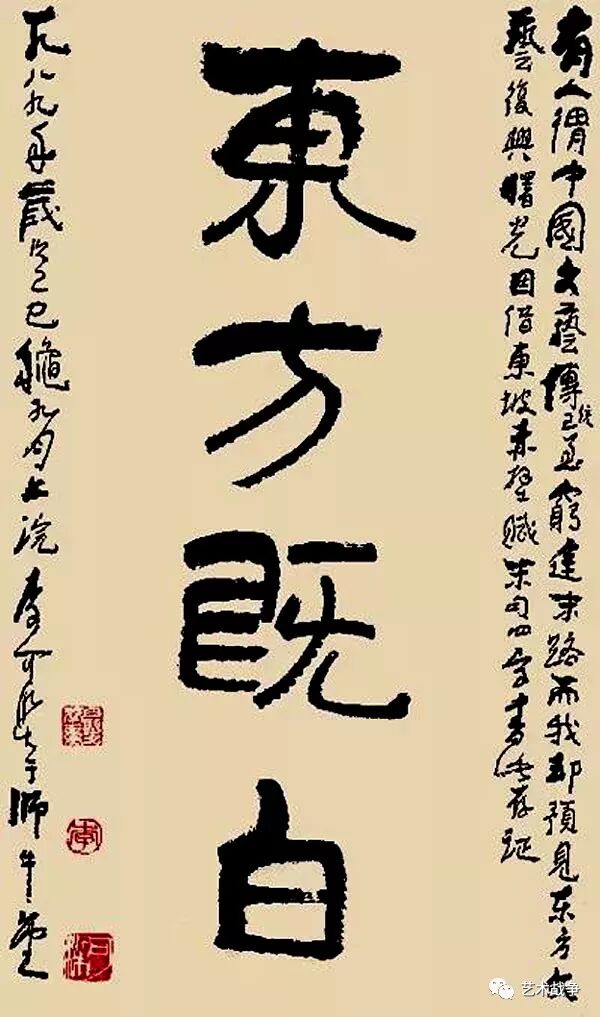 有人謂中國文藝傳統已至窮途末路而我却預見东方文
藝復興曙光因借東坡赤壁賦末句四字書此存証
東方既白
一九八九年歲次己巳穐九月上浣李可染于師牛堂
李
可染
艺术战争